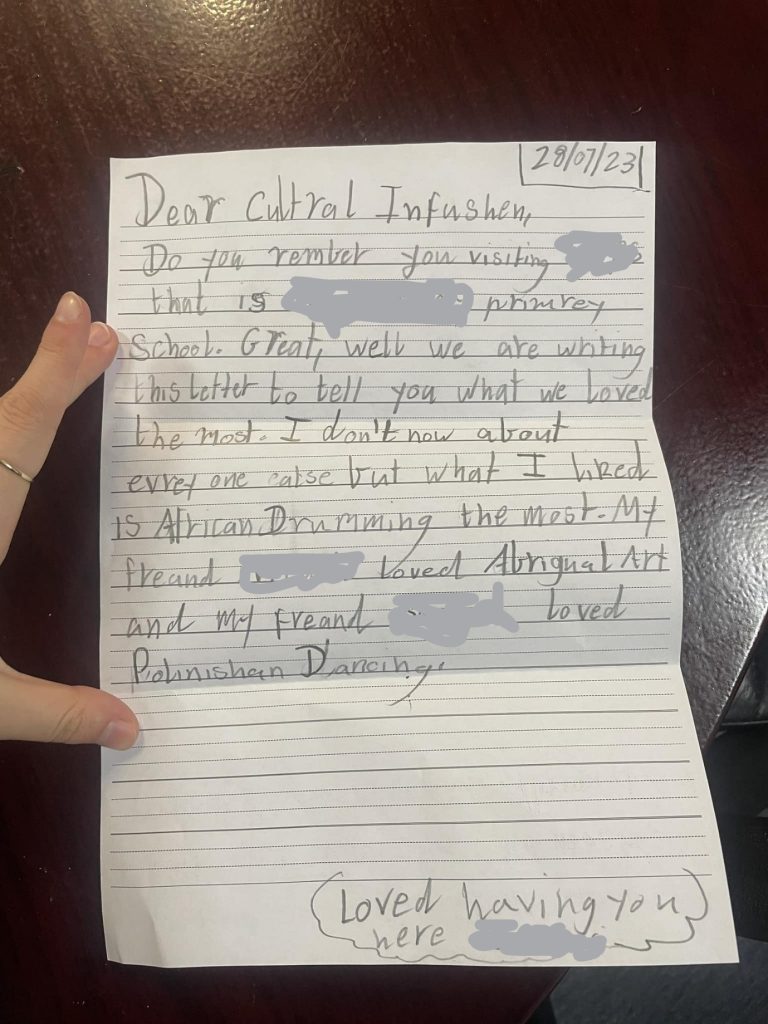 28/07/23
Dear Cultral Infushen,
Do you rember you visiting
that is primrey
School. Great, well we are writing
this letter to tell you what we Loved
the most. I don't now about
evrey one catse but what I liked
is African Drumming the most. My
freand Loved Abrigual Art
and my freand loved
Polinishan Dancing.
Loved having you
here